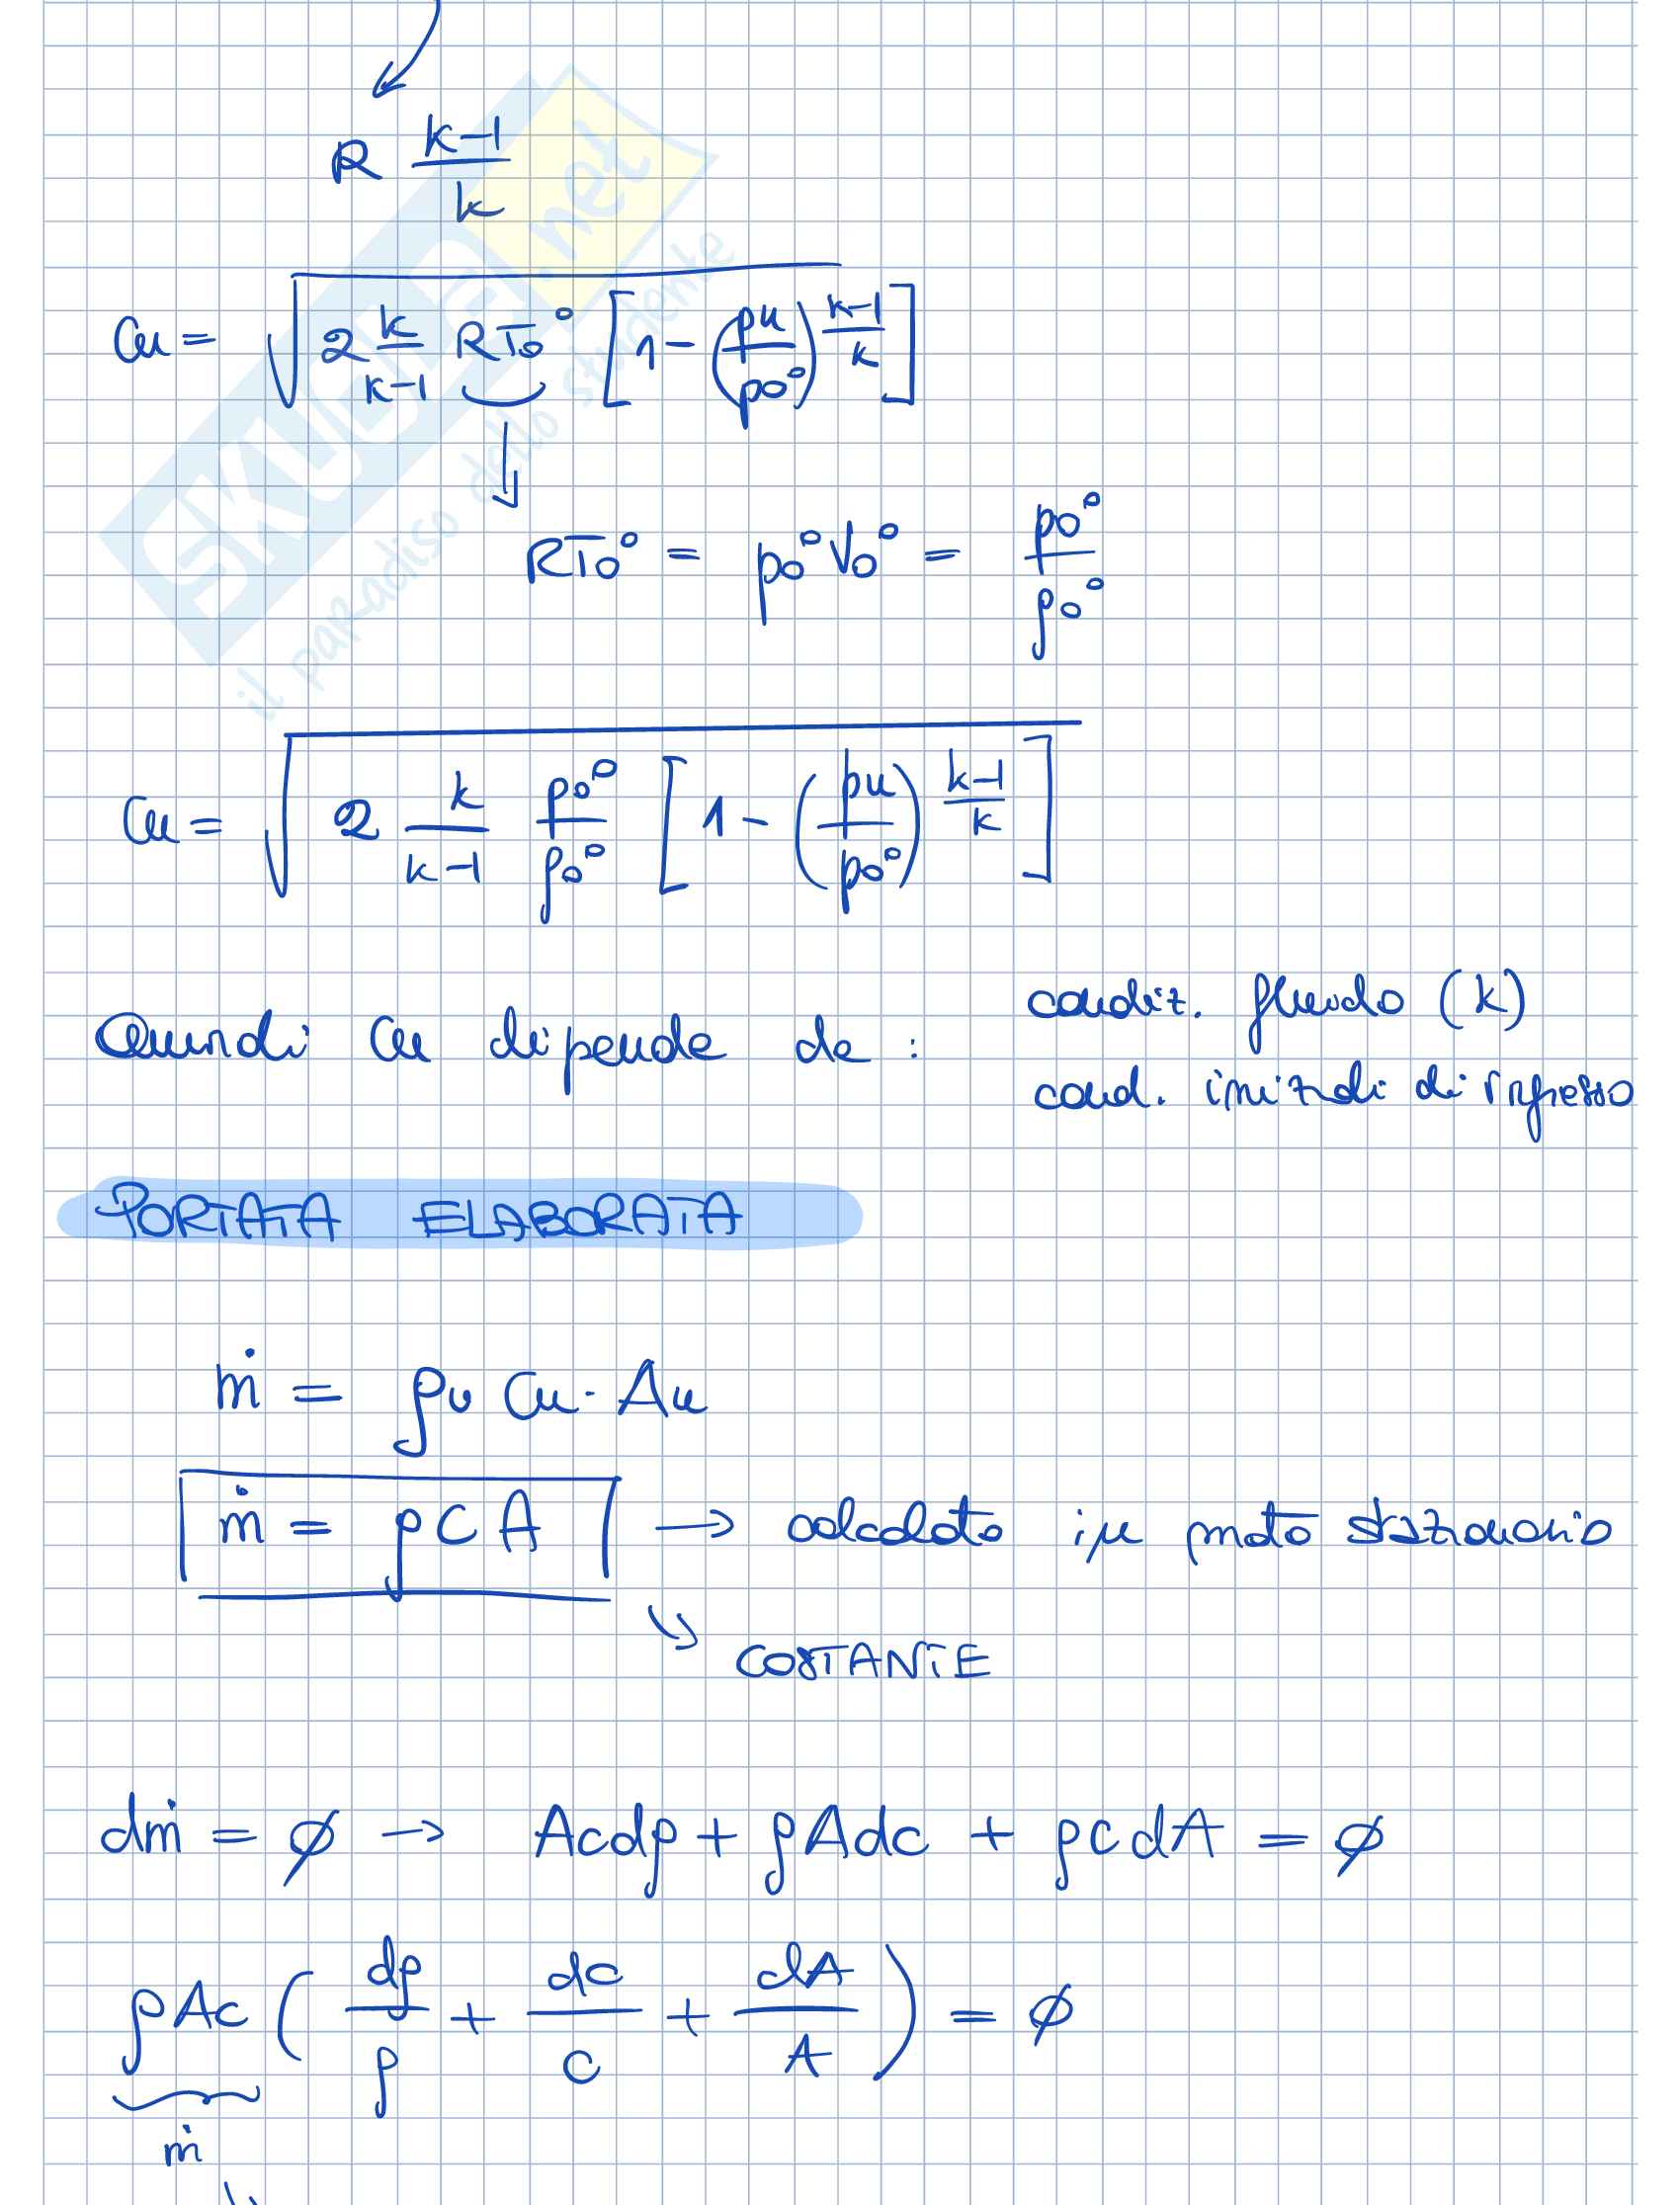 R (k-1)/k
Cu = √(2 k/(k-1) RT0° [1 - (pu/p0°)^((k-1)/k)])
RT0° = p0° V0° = p0°/ρ0°
Cu = √(2 k/(k-1) p0°/ρ0° [1 - (pu/p0°)^((k-1)/k)])
condiz. fluido (k)
Quindi Cu dipende da :
cond. iniziali di ingresso
PORTATA ELABORATA
ṁ = ρu Cu · Au
ṁ = ρ C A → calcolata in moto stazionario
↘ COSTANTE
dṁ = ∅ → Acdρ + ρAdc + ρcdA = ∅
ρAc (dρ/ρ + dc/c + dA/A) = ∅
ṁ
SKUOLA.net
il paradiso dello studente